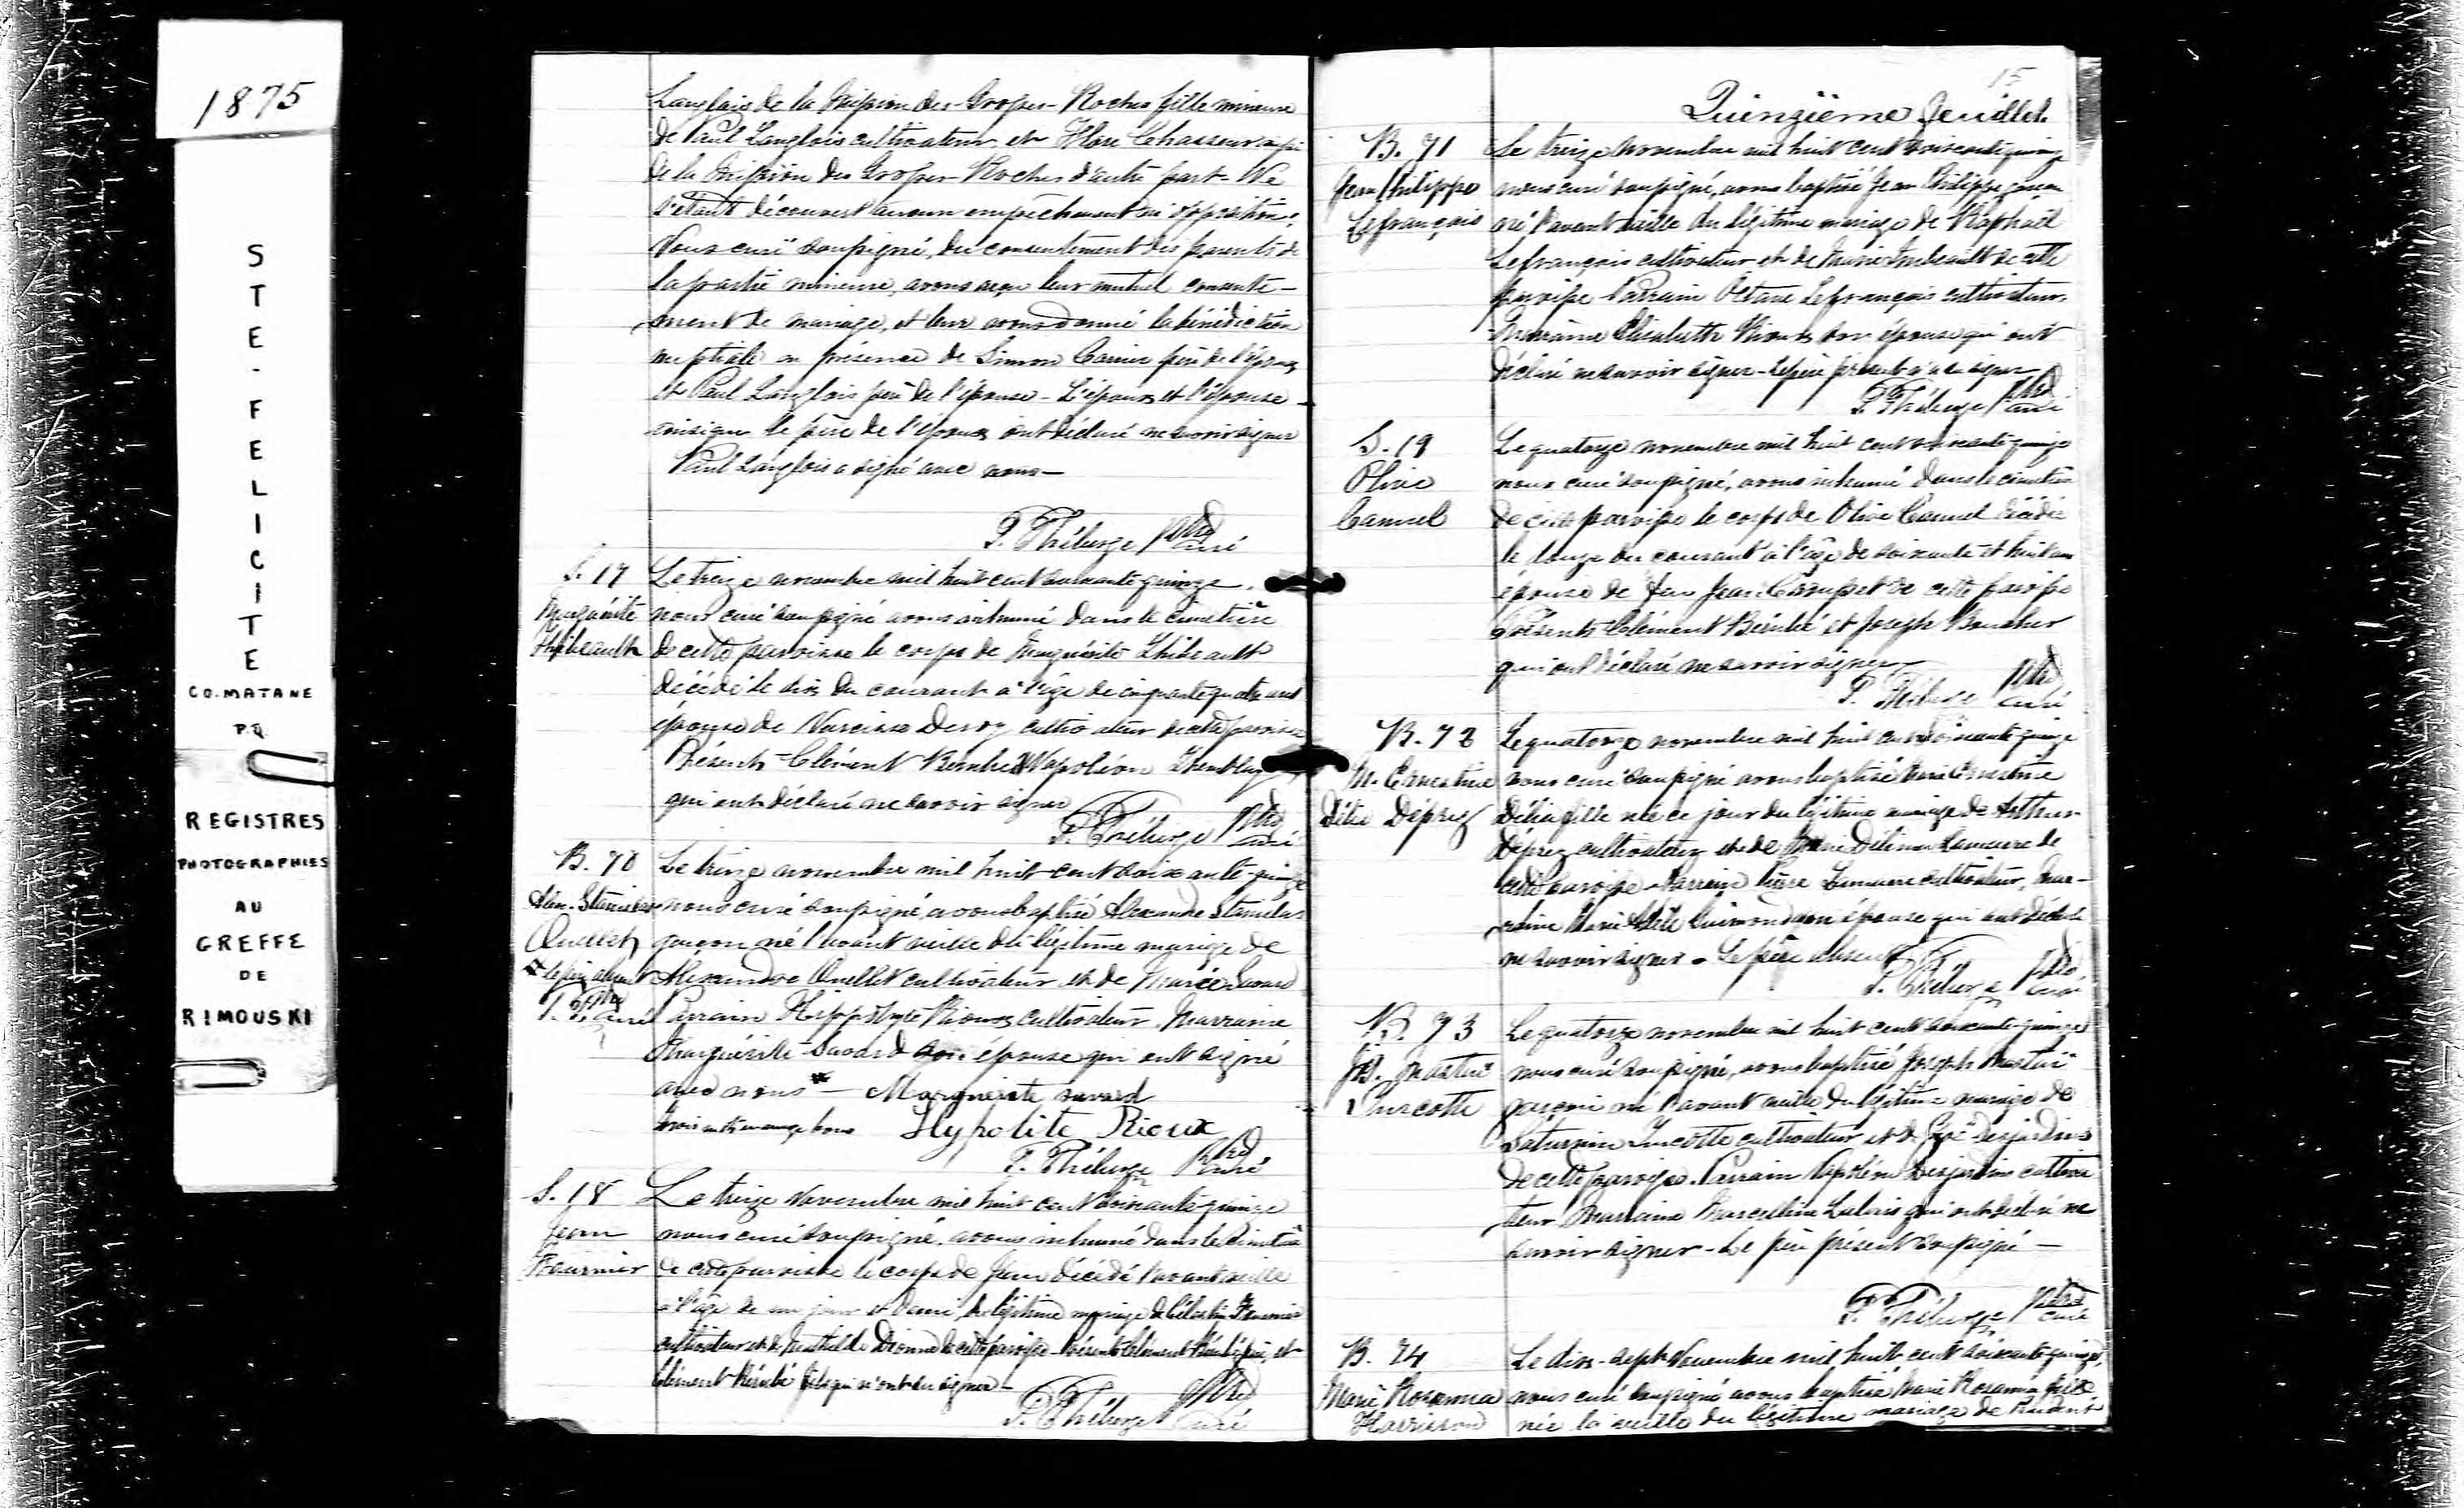 1875
STE-FELICITE
CO. MATANE
P.Q.
REGISTRES
PHOTOGRAPHIES
AU
GREFFE
DE
RIMOUSKI
Langlois de la Mission des Grosses-Roches fille mineure
de Paul Langlois cultivateur et Flore Chasseur aussi
de la Mission des Grosses Roches d'autre part. Ne
s'étant découvert aucun empêchement ni opposition;
Nous curé soussigné, du consentement des parents de
la partie mineure, avons reçu leur mutuel consente-
ment de mariage, et leur avons donné la bénédiction
nuptiale en présence de Simon Carrier père de l'époux
et Paul Langlois père de l'épouse - L'époux et l'épouse
ainsique le père de l'époux ont déclaré ne savoir signer
Paul Langlois a signé avec nous -
P. Théberge Ptre
curé
S. 17
Marguérite
Thibeault
Le treize novembre mil huit cent soixante quinze
nous curé soussigné avons inhumé dans le cimetière
de cette paroisse le corps de Marguérite Thibeault
décédé le dix du courant a l'âge de cinquante quatre ans
épouse de Narcisse Desroy cultivateur de cette paroisse
Présents - Clément Bérubé Napoléon Tremblay
qui ont déclaré ne savoir signer
P. Théberge Ptre
curé
B. 70
Alex. Stanislas
Ouellet
* le père absent
P. T. Ptre curé
Le treize novembre mil huit cent soixante-quinze
nous curé soussigné, avons baptisé Alexandre Stanislas
garçon né l'avant veille du légitime mariage de
Alexandre Ouellet cultivateur et de Marie Savard
Parrain Hippolyte Rioux cultivateur. Marraine
Marguérite Savard son épouse qui ont signé
avec nous * - Marguerite savard
trois mots en marge bons Hypolite Rioux
P. Théberge Ptre
curé
S. 18
Jean
Fournier
Le treize Novembre mil huit cent soixante quinze
nous curé soussigné, avons inhumé dans le Cimetière
de cette paroisse le corps de Jean décédé l'avant veille
a l'âge de un jour et demi, du légitime mariage de Célestin Fournier
cultivateur et de Mathilde Dionne de cette paroisse - Présents Clément Bérubé père, et
Clément Bérubé fils qui n'ont su signer -
P. Théberge Ptre
curé
15
Quinzième feuillet.
B. 71
Jean Philippe
Lefrançois
Le treize Novembre mil huit cent soixante quinze
nous curé soussigné, avons baptisé Jean Philippe garçon
né l'avant veille du légitime mariage de Raphaël
Lefrançois cultivateur et de Marie Imbeault de cette
paroisse - Parrain Octave Lefrançois cultivateur,
Marraine Elisabeth Rioux son épouse qui ont
déclaré ne savoir signer - Le père présent n'a su signer
P. Théberge Ptre
curé
S. 19
Olive
Canuel
Le quatorze novembre mil huit cent soixante quinze
nous curé soussigné, avons inhumé dans le cimetière
de cette paroisse le corps de Olive Canuel décédée
le douze du courant à l'âge de soixante et huit ans
épouse de feu Jean de cette paroisse
Présents Clément Bérubé et Joseph Boucher
qui ont déclaré ne savoir signer
P. Théberge Ptre
curé
B. 72
M. Ernestine
Délia Déprez
Le quatorze novembre mil huit cent soixante quinze
nous curé soussigné avons baptisé Marie Ernestine
Délia fille née ce jour du légitime mariage de Arthur
Déprez cultivateur et de Marie Délima Lamarre de
cette paroisse - Parrain Pierre Lamarre cultivateur, Mar-
raine Marie Adèle Guimond son épouse qui ont déclaré
ne savoir signer - Le père absent
P. Théberge Ptre
curé
B. 73
Js. Mastaï
Turcotte
Le quatorze novembre mil huit cent soixante quinze
nous curé soussigné, avons baptisé Joseph Mastaï
garçon né l'avant veille du légitime mariage de
Saturnin Turcotte cultivateur et de Desjardins
de cette paroisse. Parrain Napoléon Desjardins cultiva
teur Marraine Marcelline qui ont déclaré ne
savoir signer - Le père présent soussigné -
P. Théberge Ptre
curé
B. 74
Marie Rosanna
Harrisson
Le dix-sept Novembre mil huit cent soixante quinze,
nous curé soussigné avons baptisé Marie Rosanna fille
née la veille du légitime mariage de